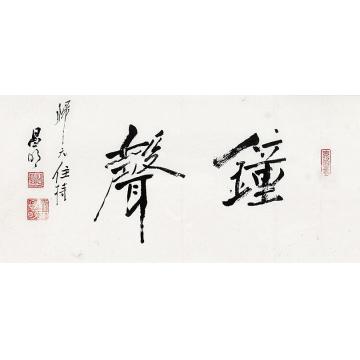 鐘聲
歸元住持
昌明